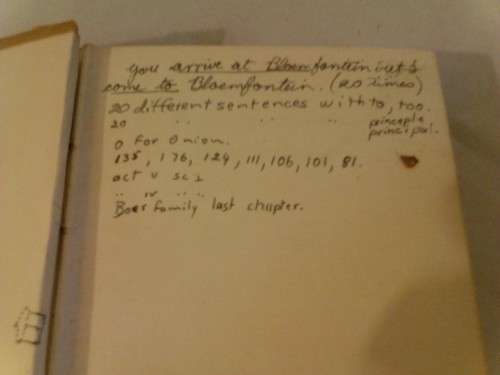 you arrive at Bloemfontein but
come to Bloemfontein. (20 times)
20 different sentences with to, too.
20 " " " principle
principal.
O for Onion.
135, 176, 124, 111, 106, 101, 81.
act V sc 1
" IV " "
Boer family last chapter.